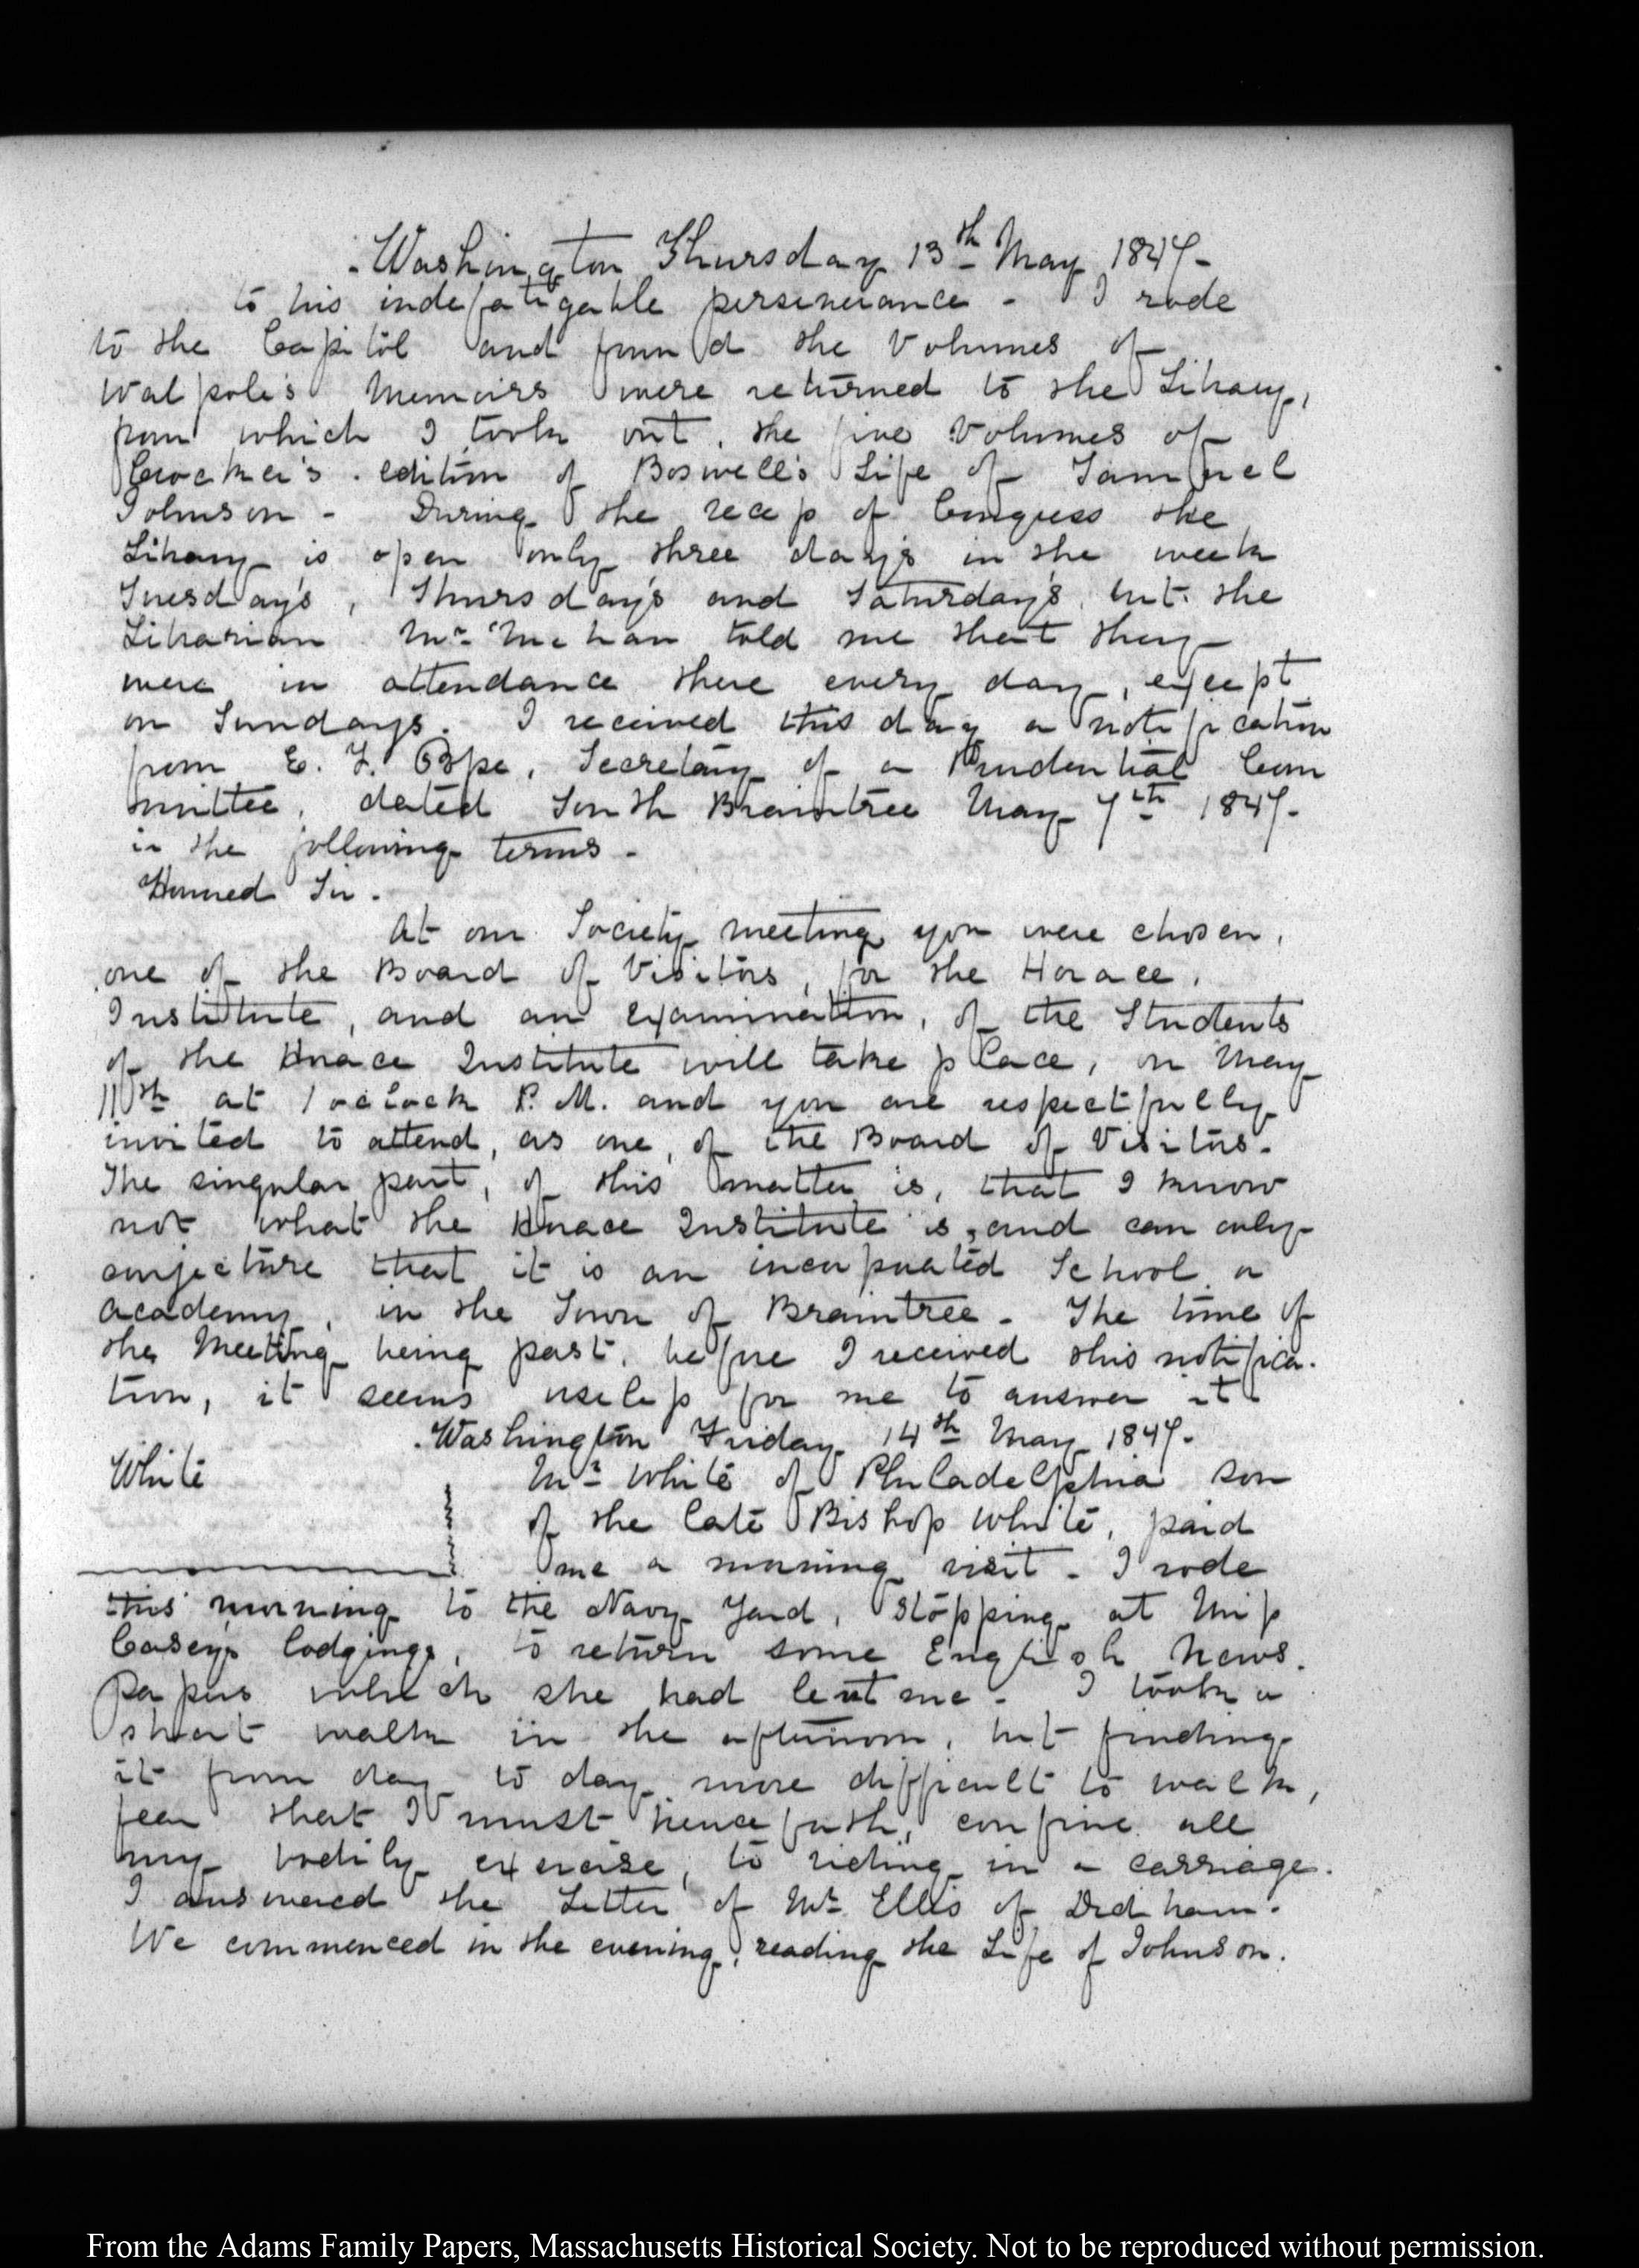 Washington Thursday 13th May 1847-
to his indefatigable perseverance - I rode
to the Capitol and found the Volumes of
Walpole's Memoirs were returned to the Library,
from which I took out, the five Volumes of
Crocker's edition of Boswell's Life of Samuel
Johnson - During the recess of Congress the
Library is open only three days in the week
Tuesday's, Thursday's and Saturday's, but the
Librarian Mr Mehan told me that they
were in attendance there every day, except
on Sundays. I received this day a notification
from E. F. Pope, Secretary of a Prudential Com
mittee, dated South Braintree May 7th 1847-
in the following terms -
Honored Sir -
At our Society meeting you were chosen,
one of the Board of Visitors, for the Horace,
Institute, and an examination, of the Students
of the Horace Institute will take place, on May
11th at 1 oclock P. M. and you are respectfully
invited to attend, as one, of the Board of Visitors -
The singular part, of this matter is, that I know
not what the Horace Institute is, and can only
conjecture that it is an incorporated School or
academy, in the Town of Braintree - The time of
the Meeting being past, before I received this notifica-
tion, it seems useless for me to answer it
Washington Friday 14th May 1847-
White
Mr White of Philadelphia son
of the late Bishop White, paid
me a morning visit - I rode
this morning to the Navy Yard, stopping at Miss
Casey's lodgings, to return some English News-
Papers which she had lent me - I took a
short walk in the afternoon, but finding
it from day to day more difficult to walk,
fear that I must henceforth, confine all
my bodily exercise, to riding in a carriage.
I answered the Letter of Mr Ellis of Dedham.
We commenced in the evening, reading the Life of Johnson.
From the Adams Family Papers, Massachusetts Historical Society. Not to be reproduced without permission.